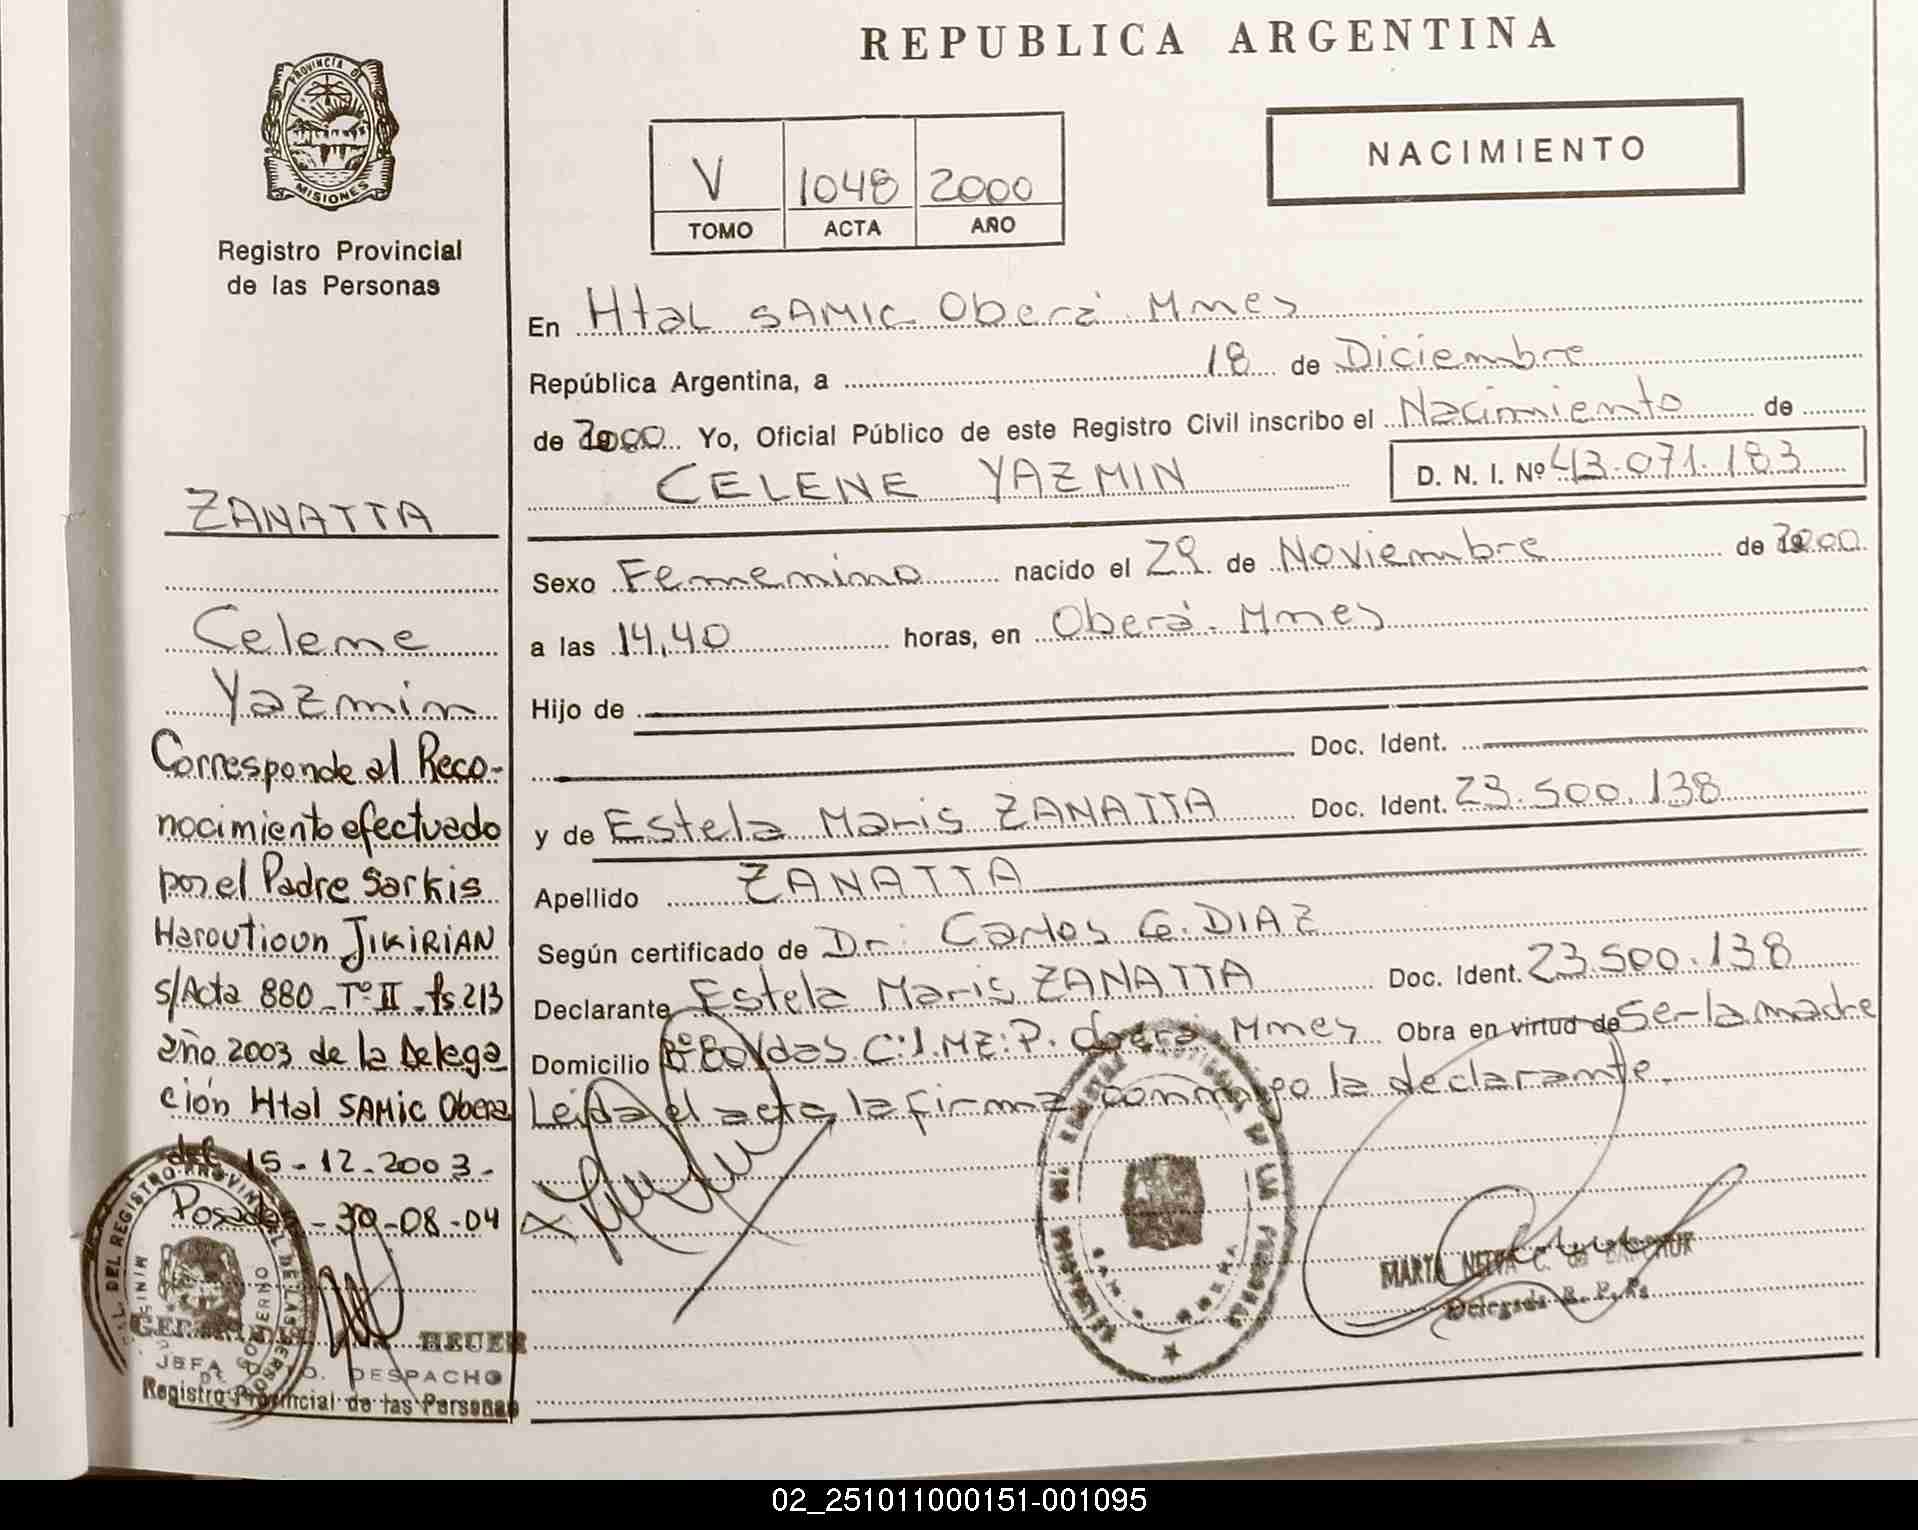 PROVINCIA DE
MISIONES
Registro Provincial
de las Personas
ZANATTA
Celene
Yazmin
Corresponde al Reco-
nocimiento efectuado
por el Padre Sarkis
Haroutioun JIKIRIAN
s/Acta 880 - Tº II - fs. 213
año 2003 de la Delega
ción Htal SAMIC Obera
del 15-12-2003-
Posadas - 30-08-04
HEUER
JEFA DESPACHO
Registro Provincial de las Personas
REPUBLICA ARGENTINA
V 1048 2000
TOMO ACTA AÑO
NACIMIENTO
En Htal SAMIC Oberá Mnes
República Argentina, a 18 de Diciembre
de 2000 Yo, Oficial Público de este Registro Civil inscribo el Nacimiento de
CELENE YAZMIN D. N. I. Nº 43.071.183
Sexo Femenino nacido el 29 de Noviembre de 2000
a las 14,40 horas, en Oberá. Mnes
Hijo de
Doc. Ident.
y de Estela Maris ZANATTA Doc. Ident. 23.500.138
Apellido ZANATTA
Según certificado de Dr. Carlos G. DIAZ
Declarante Estela Maris ZANATTA Doc. Ident. 23.500.138
Domicilio Bº 80 Vdas. Oberá Mnes Obra en virtud de Ser la madre
Leida el acta la firma conmigo la declarante.
MARTA C. de
Delegada R. P. Ps
02_251011000151-001095